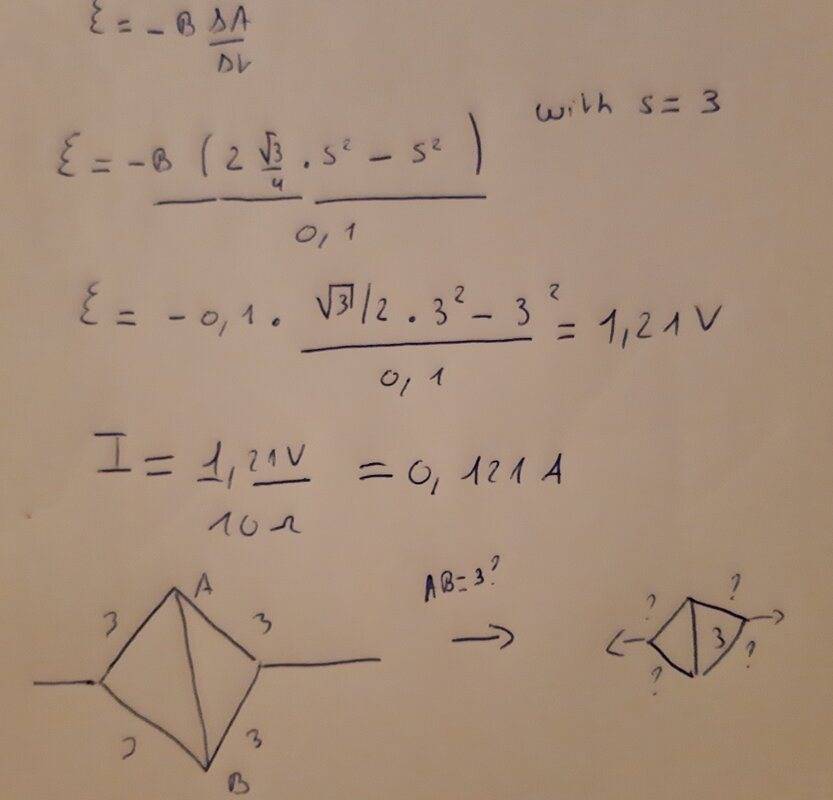 ℰ = - B ΔA/Δt
with s = 3
ℰ = -B (2 √3/4 · s² - s²) / 0,1
ℰ = - 0,1 · (√3/2 · 3² - 3²) / 0,1 = 1,21 V
I = 1,21V / 10 Ω = 0,121 A
A
AB=3?
3 3
? ?
3
? ?
3
B